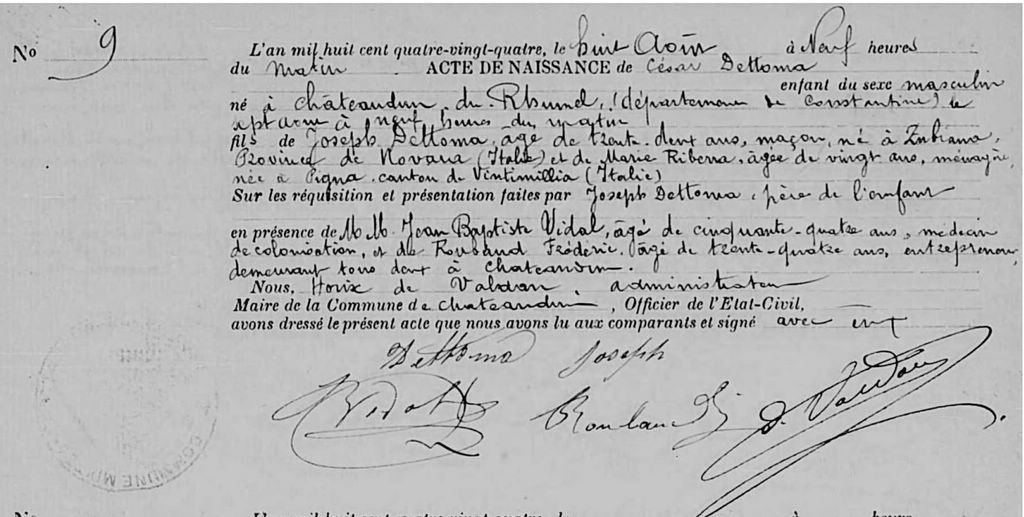 No 9
L'an mil huit cent quatre-vingt-quatre, le huit Août à Neuf heures
du Matin ACTE DE NAISSANCE de César Dettoma
enfant du sexe masculin
né à Châteaudun du Rhumel, (département de Constantine) le
sept août à neuf heures du matin
fils de Joseph Dettoma, âgé de trente-deux ans, maçon, né à Zubiena,
Province de Novara (Italie) et de Marie Riberia, âgée de vingt ans, ménagère,
née à Pigna, canton de Vintimillia (Italie)
Sur les réquisition et présentation faites par Joseph Dettoma, père de l'enfant
en présence de M.M. Jean Baptiste Vidal, âgé de cinquante-quatre ans, médecin
de colonisation, et de Roubaud Frédéric, âgé de trente-quatre ans, entrepreneur,
demeurant tous deux à Chateaudun.
Nous, de Valdan, administrateur
Maire de la Commune de Chateaudun, Officier de l'Etat-Civil,
avons dressé le présent acte que nous avons lu aux comparants et signé avec eux
Dettoma Joseph
Vidal
COMMUNE
No L'an mil huit cent quatre-vingt-quatre, le à heures